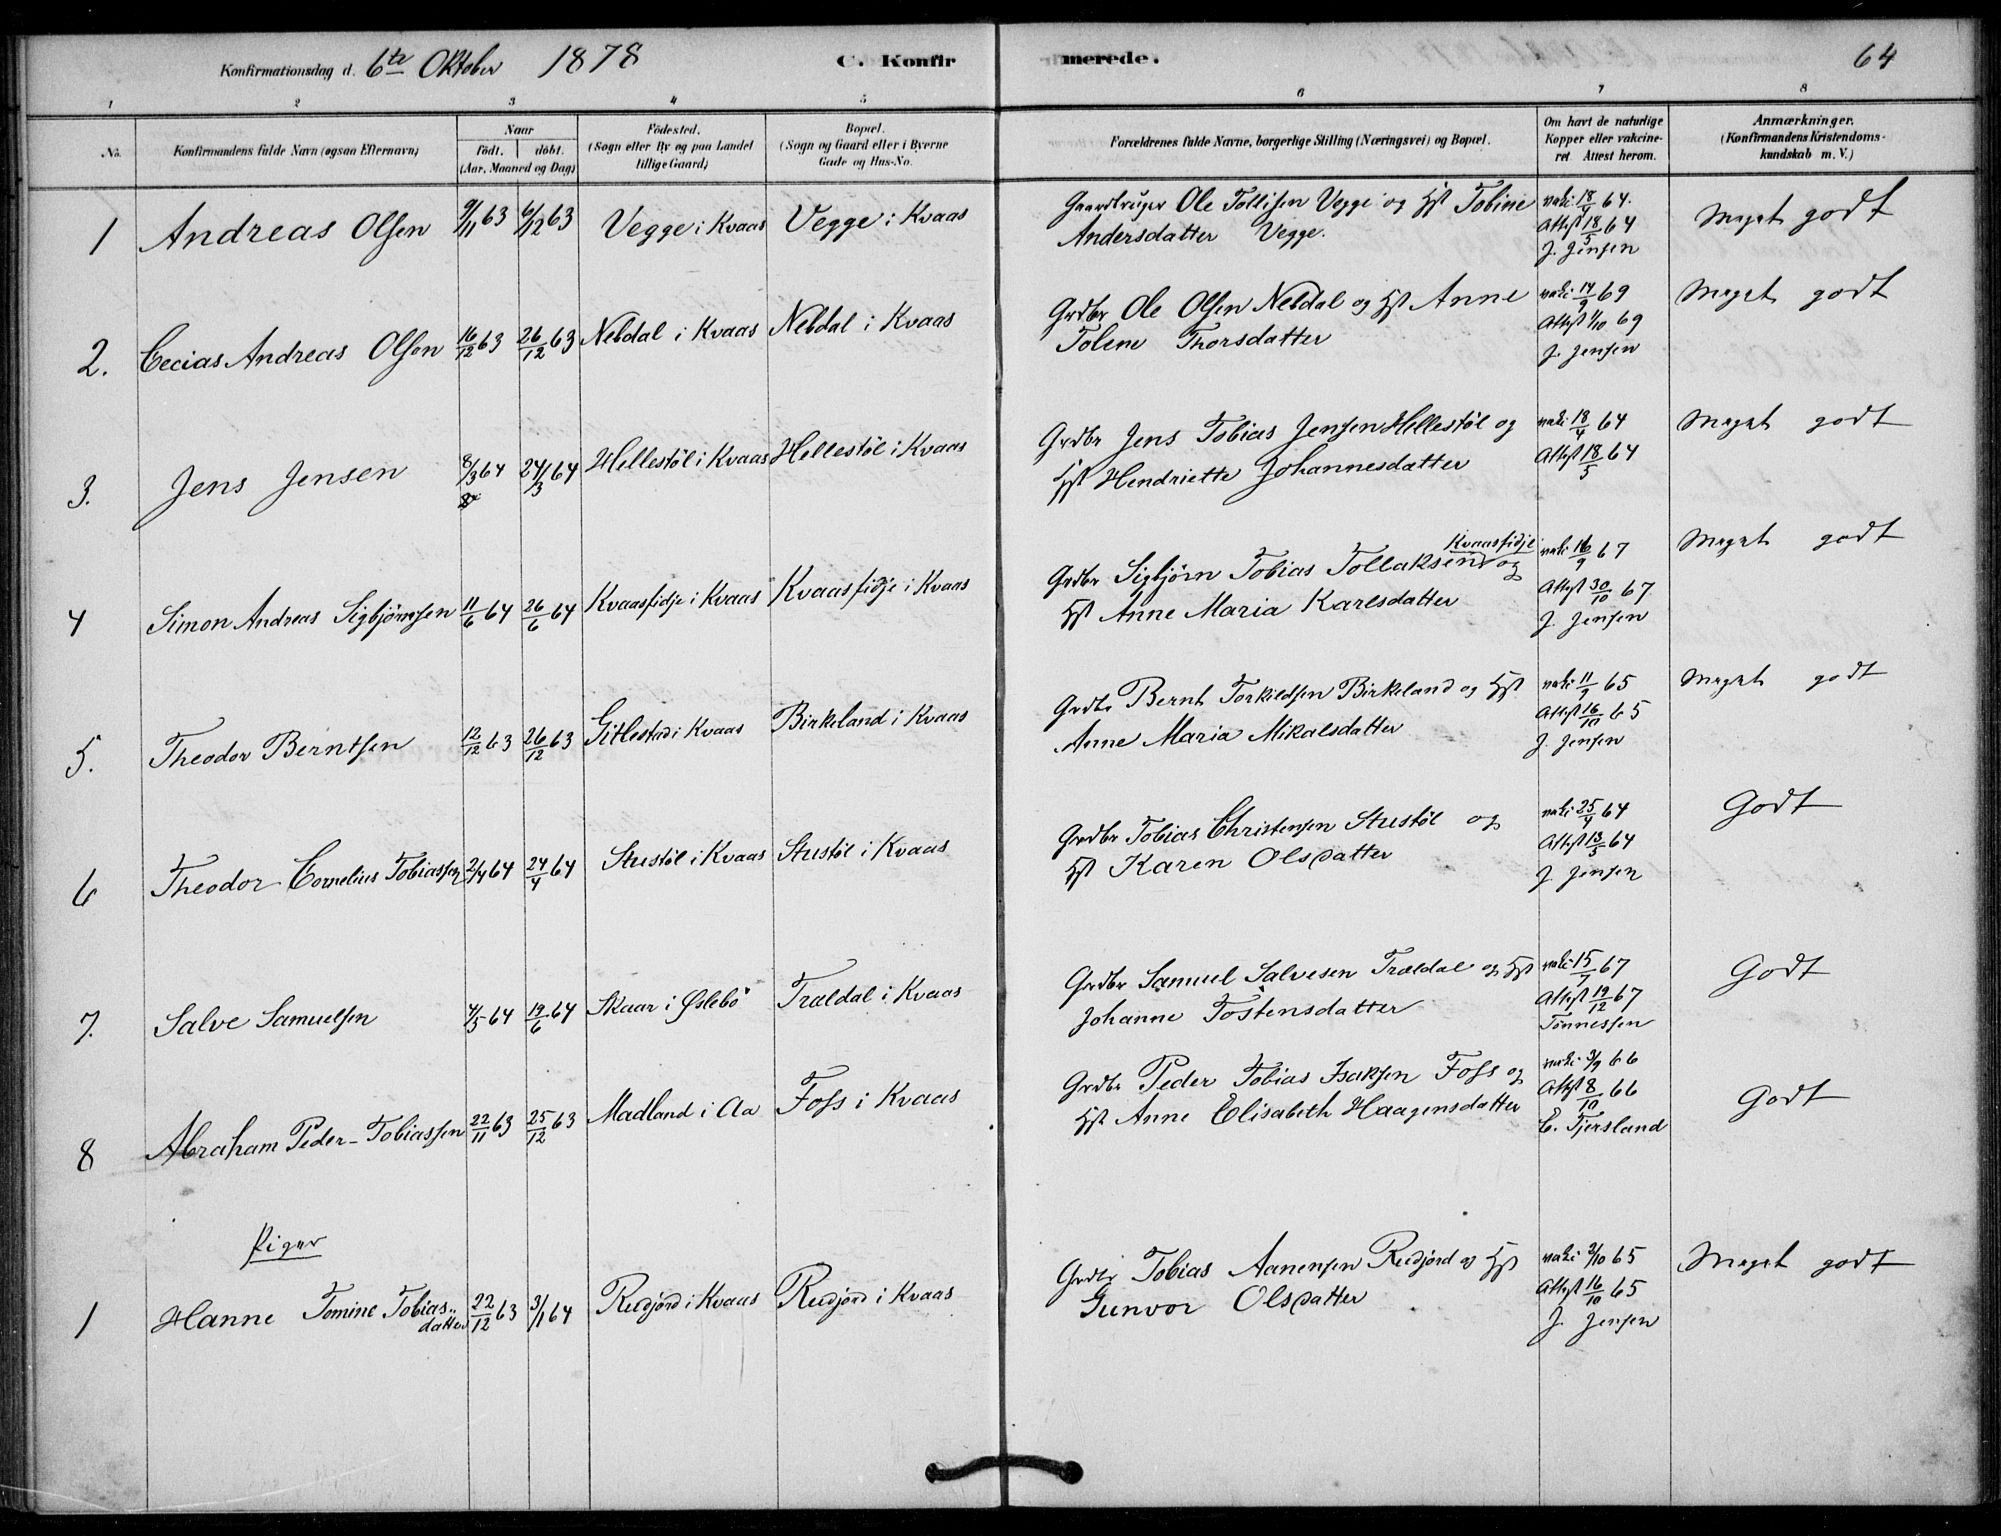 Konfirmationsdag d. 6te Oktober 1878 C. Konfirmerede. 64
1 2 3 4 5 6 7 8
No. Konfirmandens fulde Navn (ogsaa Efternavn) Naar født. døbt. (Aar, Maaned og Dag) Fødested. (Sogn eller By og paa Landet tillige Gaard) Bopæl. (Sogn og Gaard eller i Byerne Gade og Hus-No. Forældrenes fulde Navne, borgerlige Stilling (Næringsvei) og Bopæl. Om havt de naturlige Kopper eller vakcineret Attest herom. Anmærkninger. (Konfirmandens Kristendomskundskab m. V.)
1 Andreas Olsen 9/11 63 6/12 63 Vegge i Kvaas Vegge i Kvaas Gaardbruger Ole Tollisen Vegge og Hst Tobine Andersdatter Vegge. vaki 18/4 64. Attest 18/5 64 J. Jensen Meget godt
2. Cecias Andreas Olsen 16/12 63 26/12 63 Nebdal i Kvaas Nebdal i Kvaas Grdbr Ole Olsen Nebdal og Hst Anne Tolene Thorsdatter vaki 14/9 69 Attest 1/10 69 J. Jensen Meget godt
3. Jens Jensen 8/3 64 24/3 64 Hellestøl i Kvaas Hellestøl i Kvaas Grdbr Jens Tobias Jensen Hellestøl og Hst Hendriette Johannesdatter vaki 18/4 64 Attest 18/5 64 Meget godt
4 Simon Andreas Sigbjørnsen 11/6 64 26/6 64 Kvaasfidje i Kvaas Kvaasfidje i Kvaas Grdbr Sigbjørn Tobias Tollaksen Kvaasfidje og Hst Anne Maria Karlsdatter vaki 16/9 67 Attest 30/10 67 J. Jensen Meget godt
5. Theodor Berntsen 12/12 63 26/12 63 Gitlestad i Kvaas Birkeland i Kvaas Grdbr Bernt Torkildsen Birkeland og Hst Anne Maria Mikalsdatter vaki 11/9 65 Attest 16/10 65 J. Jensen Meget godt
6 Theodor Cornelius Tobiassen 2/4 64 24/4 64 Stustøl i Kvaas Stustøl i Kvaas Grdbr Tobias Christensen Stustøl og Hst Karen Olsdatter vaki 25/4 64 Attest 13/5 64 J. Jensen Godt
7. Salve Samuelsen 4/5 64 19/6 64 Skaar i Øslebø Traldal i Kvaas Grdbr Samuel Salvesen Traldal og Hst Johanne Tostensdatter vaki 15/7 67 Attest 19/12 67 Tønnessen Godt
8 Abraham Peder Tobiassen 22/11 63 25/12 63 Madland i Aa Foss i Kvaas Grdbr Peder Tobias Isaksen Foss og Hst Anne Elisabeth Haagensdatter vaki 3/9 66 Attest 8/10 66 E. Tjersland Godt
Piger
1 Hanne Tomine Tobiasdatter 22/12 63 3/1 64 Rudjord i Kvaas Rudjord i Kvaas Grdbr Tobias Aanensen Rudjord og Hst Gunvor Olsdatter vaki 2/10 65 Attest 16/10 65 J. Jensen Meget godt